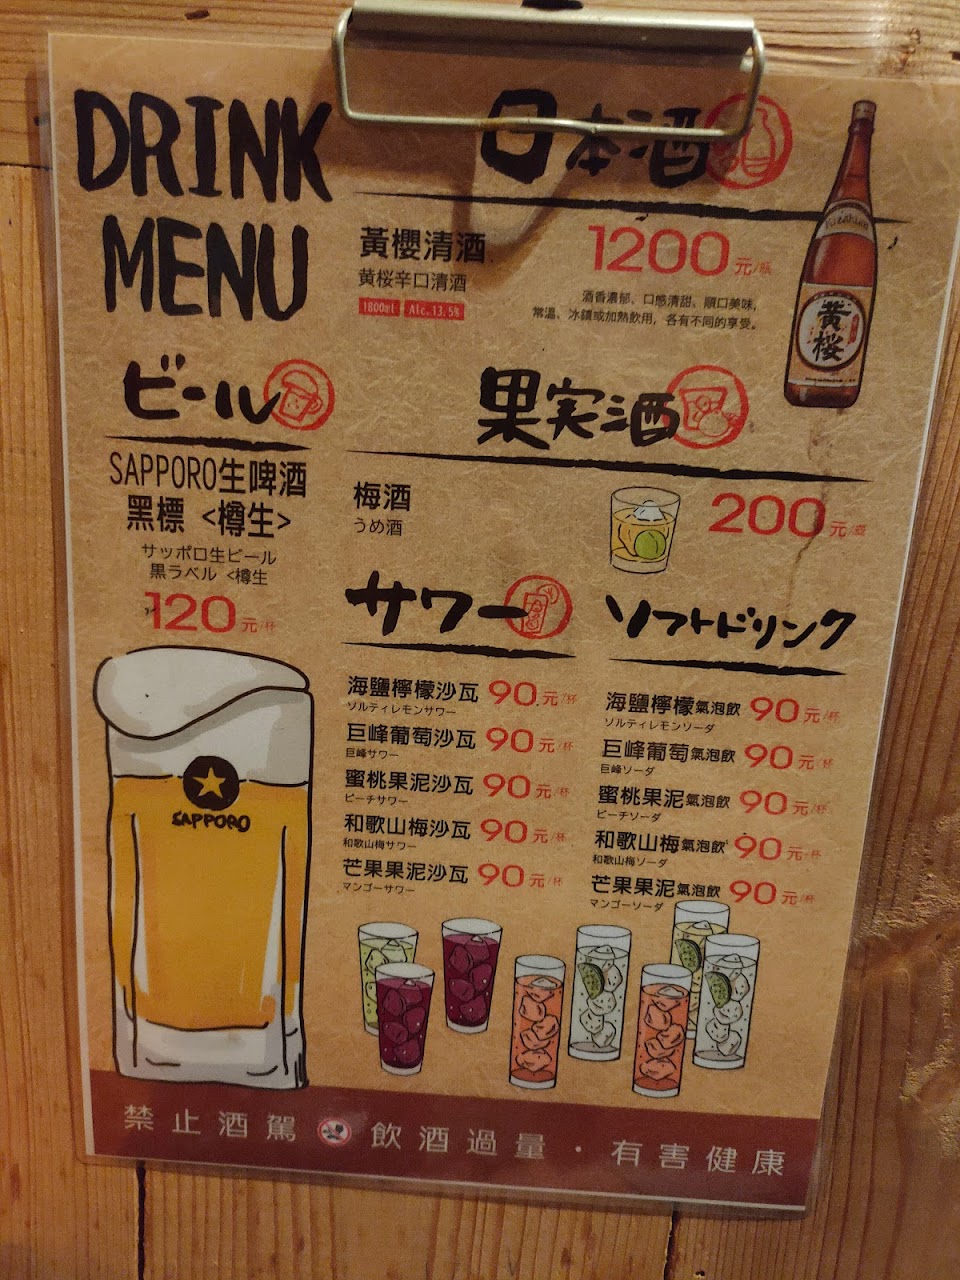 DRINK
MENU
日本酒
黃櫻清酒
黄桜辛口清酒
1800ml Alc.13.5%
1200元/瓶
酒香濃郁、口感清甜、順口美味,
常溫、冰鎮或加熱飲用,各有不同的享受。
黄桜
ビール
SAPPORO生啤酒
黑標 <樽生>
サッポロ生ビール
黒ラベル <樽生
120元/杯
SAPPORO
果実酒
梅酒
うめ酒
200元/壺
サワー
海鹽檸檬沙瓦 90元/杯
ソルティレモンサワー
巨峰葡萄沙瓦 90元/杯
巨峰サワー
蜜桃果泥沙瓦 90元/杯
ピーチサワー
和歌山梅沙瓦 90元/杯
和歌山梅サワー
芒果果泥沙瓦 90元/杯
マンゴーサワー
ソフトドリンク
海鹽檸檬氣泡飲 90元/杯
ソルティレモンソーダ
巨峰葡萄氣泡飲 90元/杯
巨峰ソーダ
蜜桃果泥氣泡飲 90元/杯
ピーチソーダ
和歌山梅氣泡飲 90元/杯
和歌山梅ソーダ
芒果果泥氣泡飲 90元/杯
マンゴーソーダ
禁止酒駕 飲酒過量・有害健康